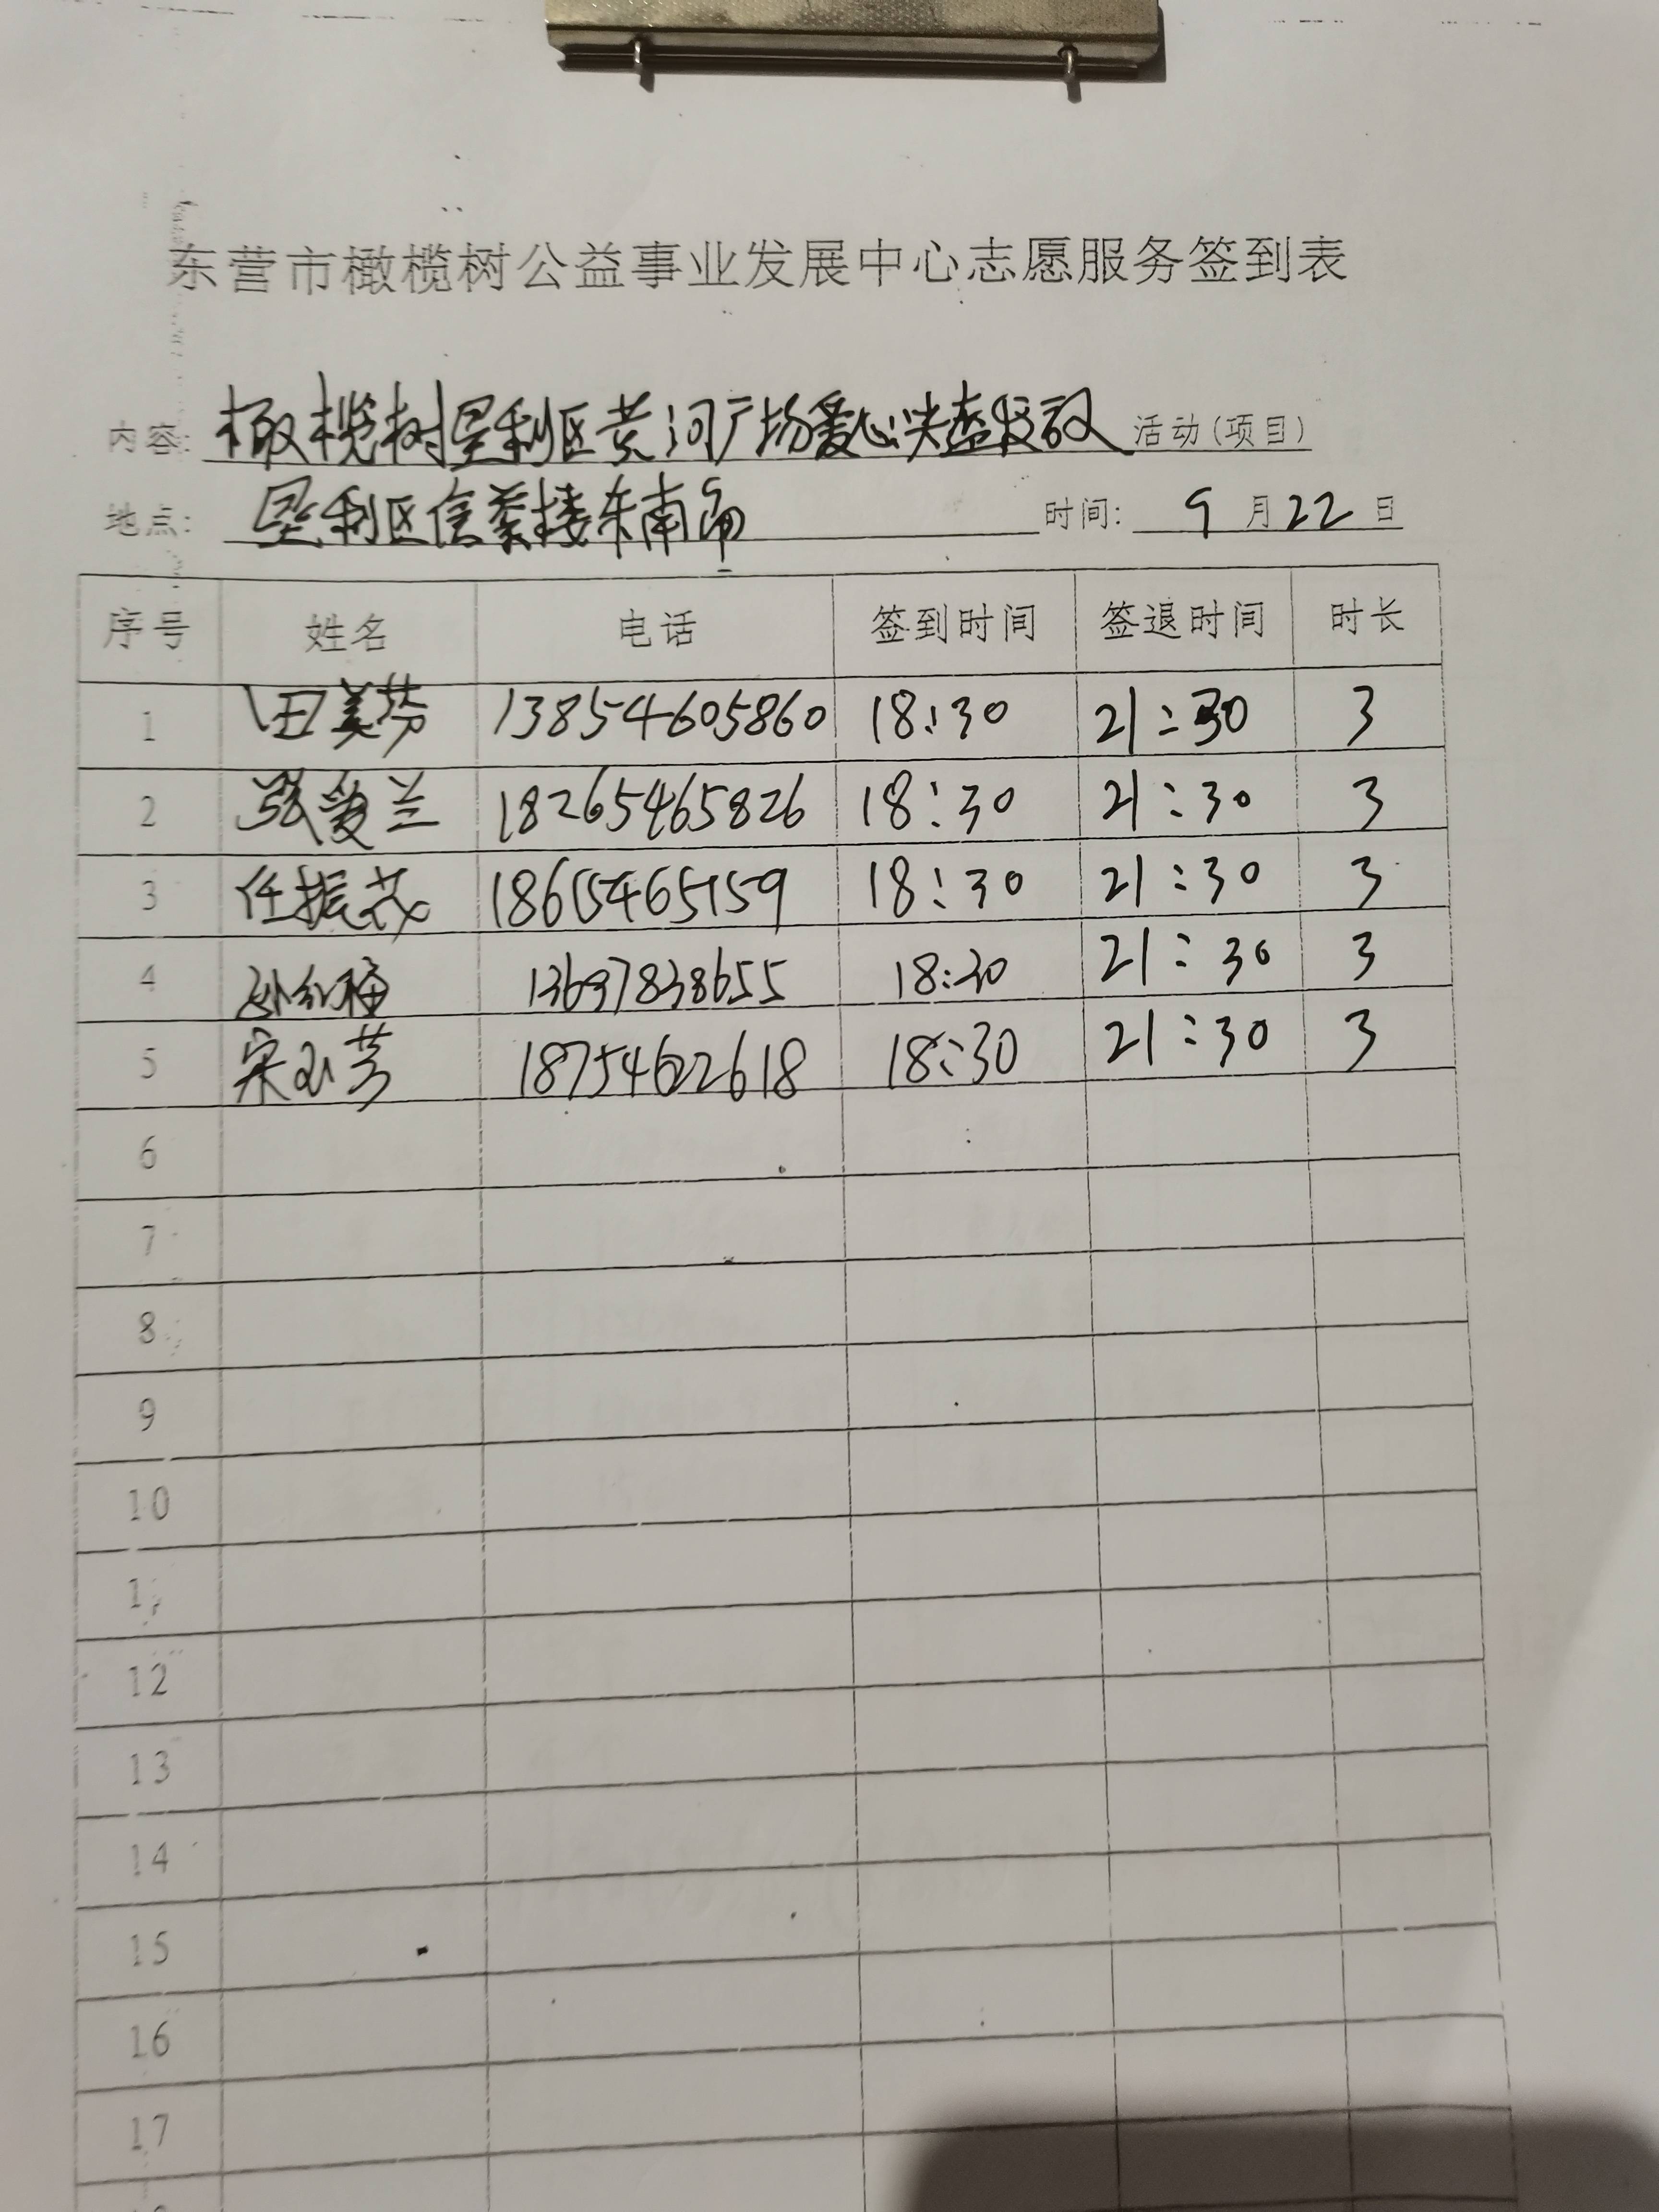 东营市橄榄树公益事业发展中心志愿服务签到表
内容: 橄榄树垦利区黄河广场爱心头盔投放 活动(项目)
地点: 垦利区信誉楼东南角 时间: 9月22日
序号 姓名 电话 签到时间 签退时间 时长
1 田美芬 13854605860 18:30 21:30 3
2 张爱兰 18265465826 18:30 21:30 3
3 任振茂 18615465159 18:30 21:30 3
4 孙红梅 13697838655 18:30 21:30 3
5 宋小芳 18754622618 18:30 21:30 3
6
7
8
9
10
12
13
14
15
16
17